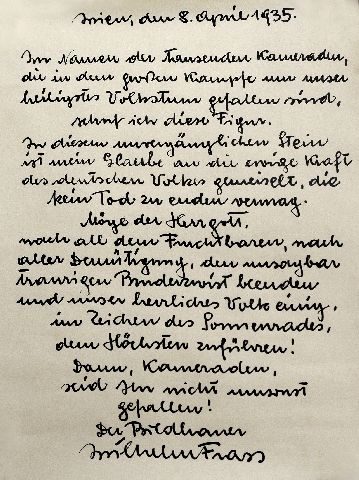 Wien, den 8. April 1935.
Im Namen der tausenden Kameraden,
die in dem großen Kampfe um unser
heiligstes Volkstum gefallen sind,
schuf ich diese Figur.
In diesem unvergänglichen Stein
ist mein Glaube an die ewige Kraft
des deutschen Volkes gemeiselt, die
kein Tod zu enden vermag.
Möge der Herrgott,
nach all dem Furchtbaren, nach
aller Demütigung, den unsagbar
traurigen Bruderzwist beenden
und unser herrliches Volk einig,
im Zeichen des Sonnenrades,
dem Höchsten zuführen!
Dann, Kameraden,
seid Ihr nicht umsonst
gefallen!
Der Bildhauer
Wilhelm Frass